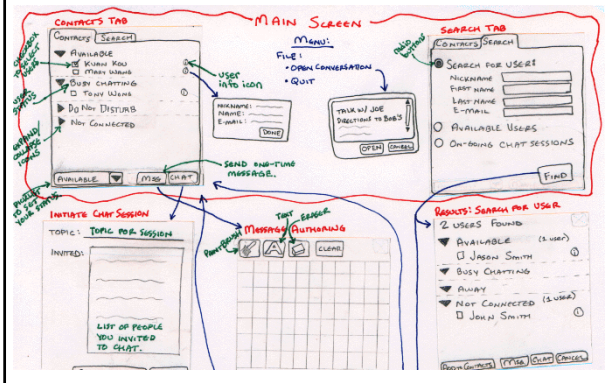 MAIN SCREEN
CONTACTS TAB
CONTACTS SEARCH
AVAILABLE
KUAN KOU
MARY WONG
BUSY CHATTING
TONY WONG
DO NOT DISTURB
NOT CONNECTED
AVAILABLE MSG CHAT
USER STATUS
EXPAND/COLLAPSE ICONS
USER INFO ICON
SEND ONE-TIME
MESSAGE.
MENU:
FILE:
• OPEN CONVERSATION
• QUIT
NICKNAME:
NAME:
E-MAIL:
DONE
TALK W/ JOE
DIRECTIONS TO BOB'S
OPEN CANCEL
SEARCH TAB
RADIO BUTTON
CONTACTS SEARCH
SEARCH FOR USER:
NICKNAME
FIRST NAME
LAST NAME
E-MAIL
AVAILABLE USERS
ON-GOING CHAT SESSIONS
FIND
INITIATE CHAT SESSION
TOPIC: TOPIC FOR SESSION
INVITED:
LIST OF PEOPLE
YOU INVITED
TO CHAT.
MESSAGE AUTHORING
PAINTBRUSH
TEXT
ERASER
A
CLEAR
RESULTS: SEARCH FOR USER
2 USERS FOUND
AVAILABLE (1 USER)
JASON SMITH
BUSY CHATTING
AWAY
NOT CONNECTED (1 USER)
JOHN SMITH
ADD TO CONTACTS MSG CHAT CANCEL